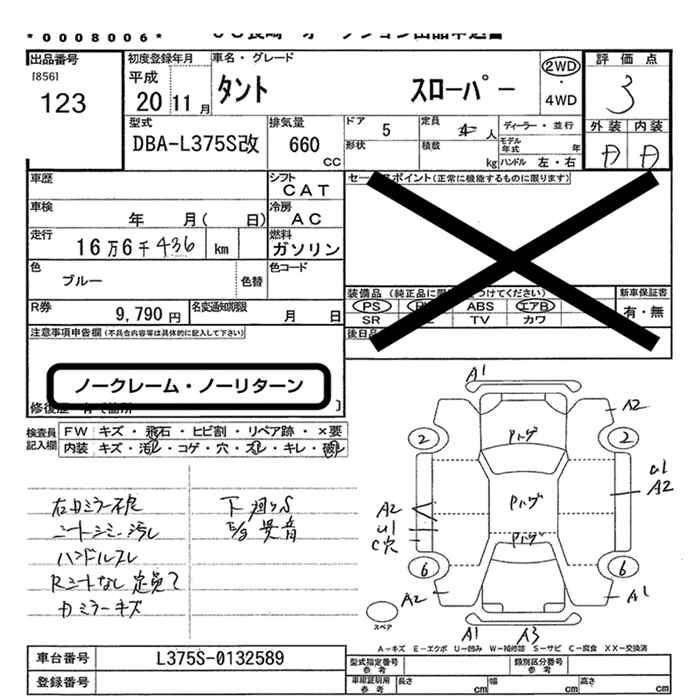 *0008006*
出品番号
[856]
123
初度登録年月
平成
20 11月
車名・グレード
タント スローパー
2WD
・
4WD
評価点
3
外装 内装
A A
型式
DBA-L375S改
排気量
660
CC
ドア
5
形状
定員
人
積載
kg
ディーラー・並行
モデル年式 年
ハンドル 左・右
車歴
シフト
CAT
車検
年 月( 日)
冷房
AC
走行
16万6千436 km
燃料
ガソリン
色
ブルー
色替
色コード
R券
9,790円
名変通知期限
月 日
セールスポイント(正常に機能するものに限ります)
装備品
PS
ABS
エアB
SR
TV
カワ
新車保証書
有・無
後日品
注意事項申告欄(不具合内容等は具体的に記入して下さい)
ノークレーム・ノーリターン
検査員
記入欄
FW キズ・飛石・ヒビ割・リペア跡・×要
内装 キズ・汚レ・コゲ・穴・スレ・キレ・破レ
右カミラー不良
シートシミ・汚レ
ハンドルスレ
Rシートなし 定員2
カミラーキズ
下廻りS
E/g異音
A1
A2
2
2
U1
A2
A2
U1
C穴
6
6
A2
A1
A1
A3
スペア
A-キズ E-エクボ U-凹み W-補修跡 S-サビ C-腐食 XX-交換済
車台番号
L375S-0132589
登録番号
型式指定番号
参考
類別区分番号
参考
車庫証明用
参考
長さ cm
幅 cm
高さ cm